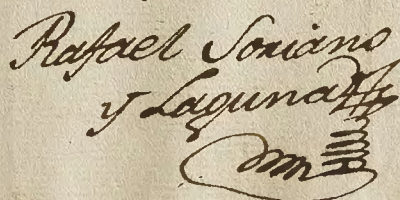 Rafael Soriano
y Laguna